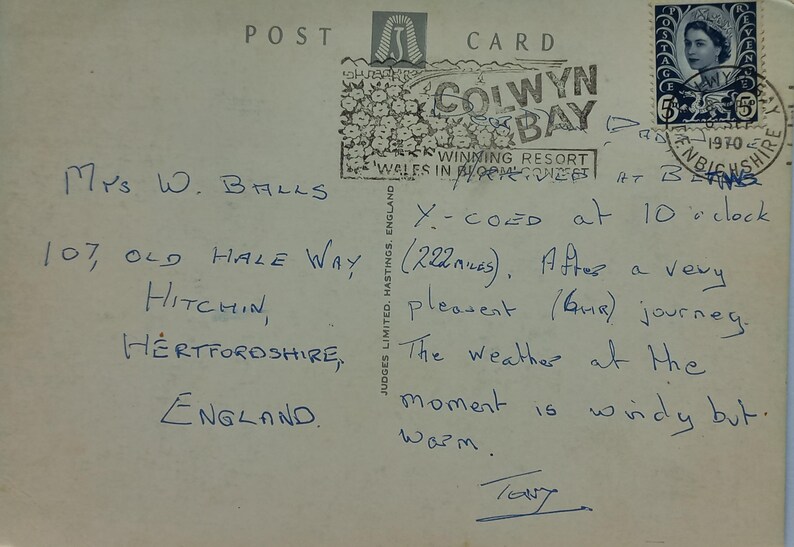 POST CARD
COLWYN
BAY
WINNING RESORT
WALES IN BLOOM CONTEST
POSTAGE
REVENUE
5D
5D
1970
DENBIGHSHIRE
Mrs W. BALLS
107, OLD HALE WAY,
HITCHIN,
HERTFORDSHIRE,
ENGLAND.
JUDGES LIMITED, HASTINGS, ENGLAND
Dad
ARRIVED AT BETWS
Y-COED at 10 o'clock
(222 MILES). After a very
pleasent (6HR) journey.
The weather at the
moment is windy but
warm.
Tony